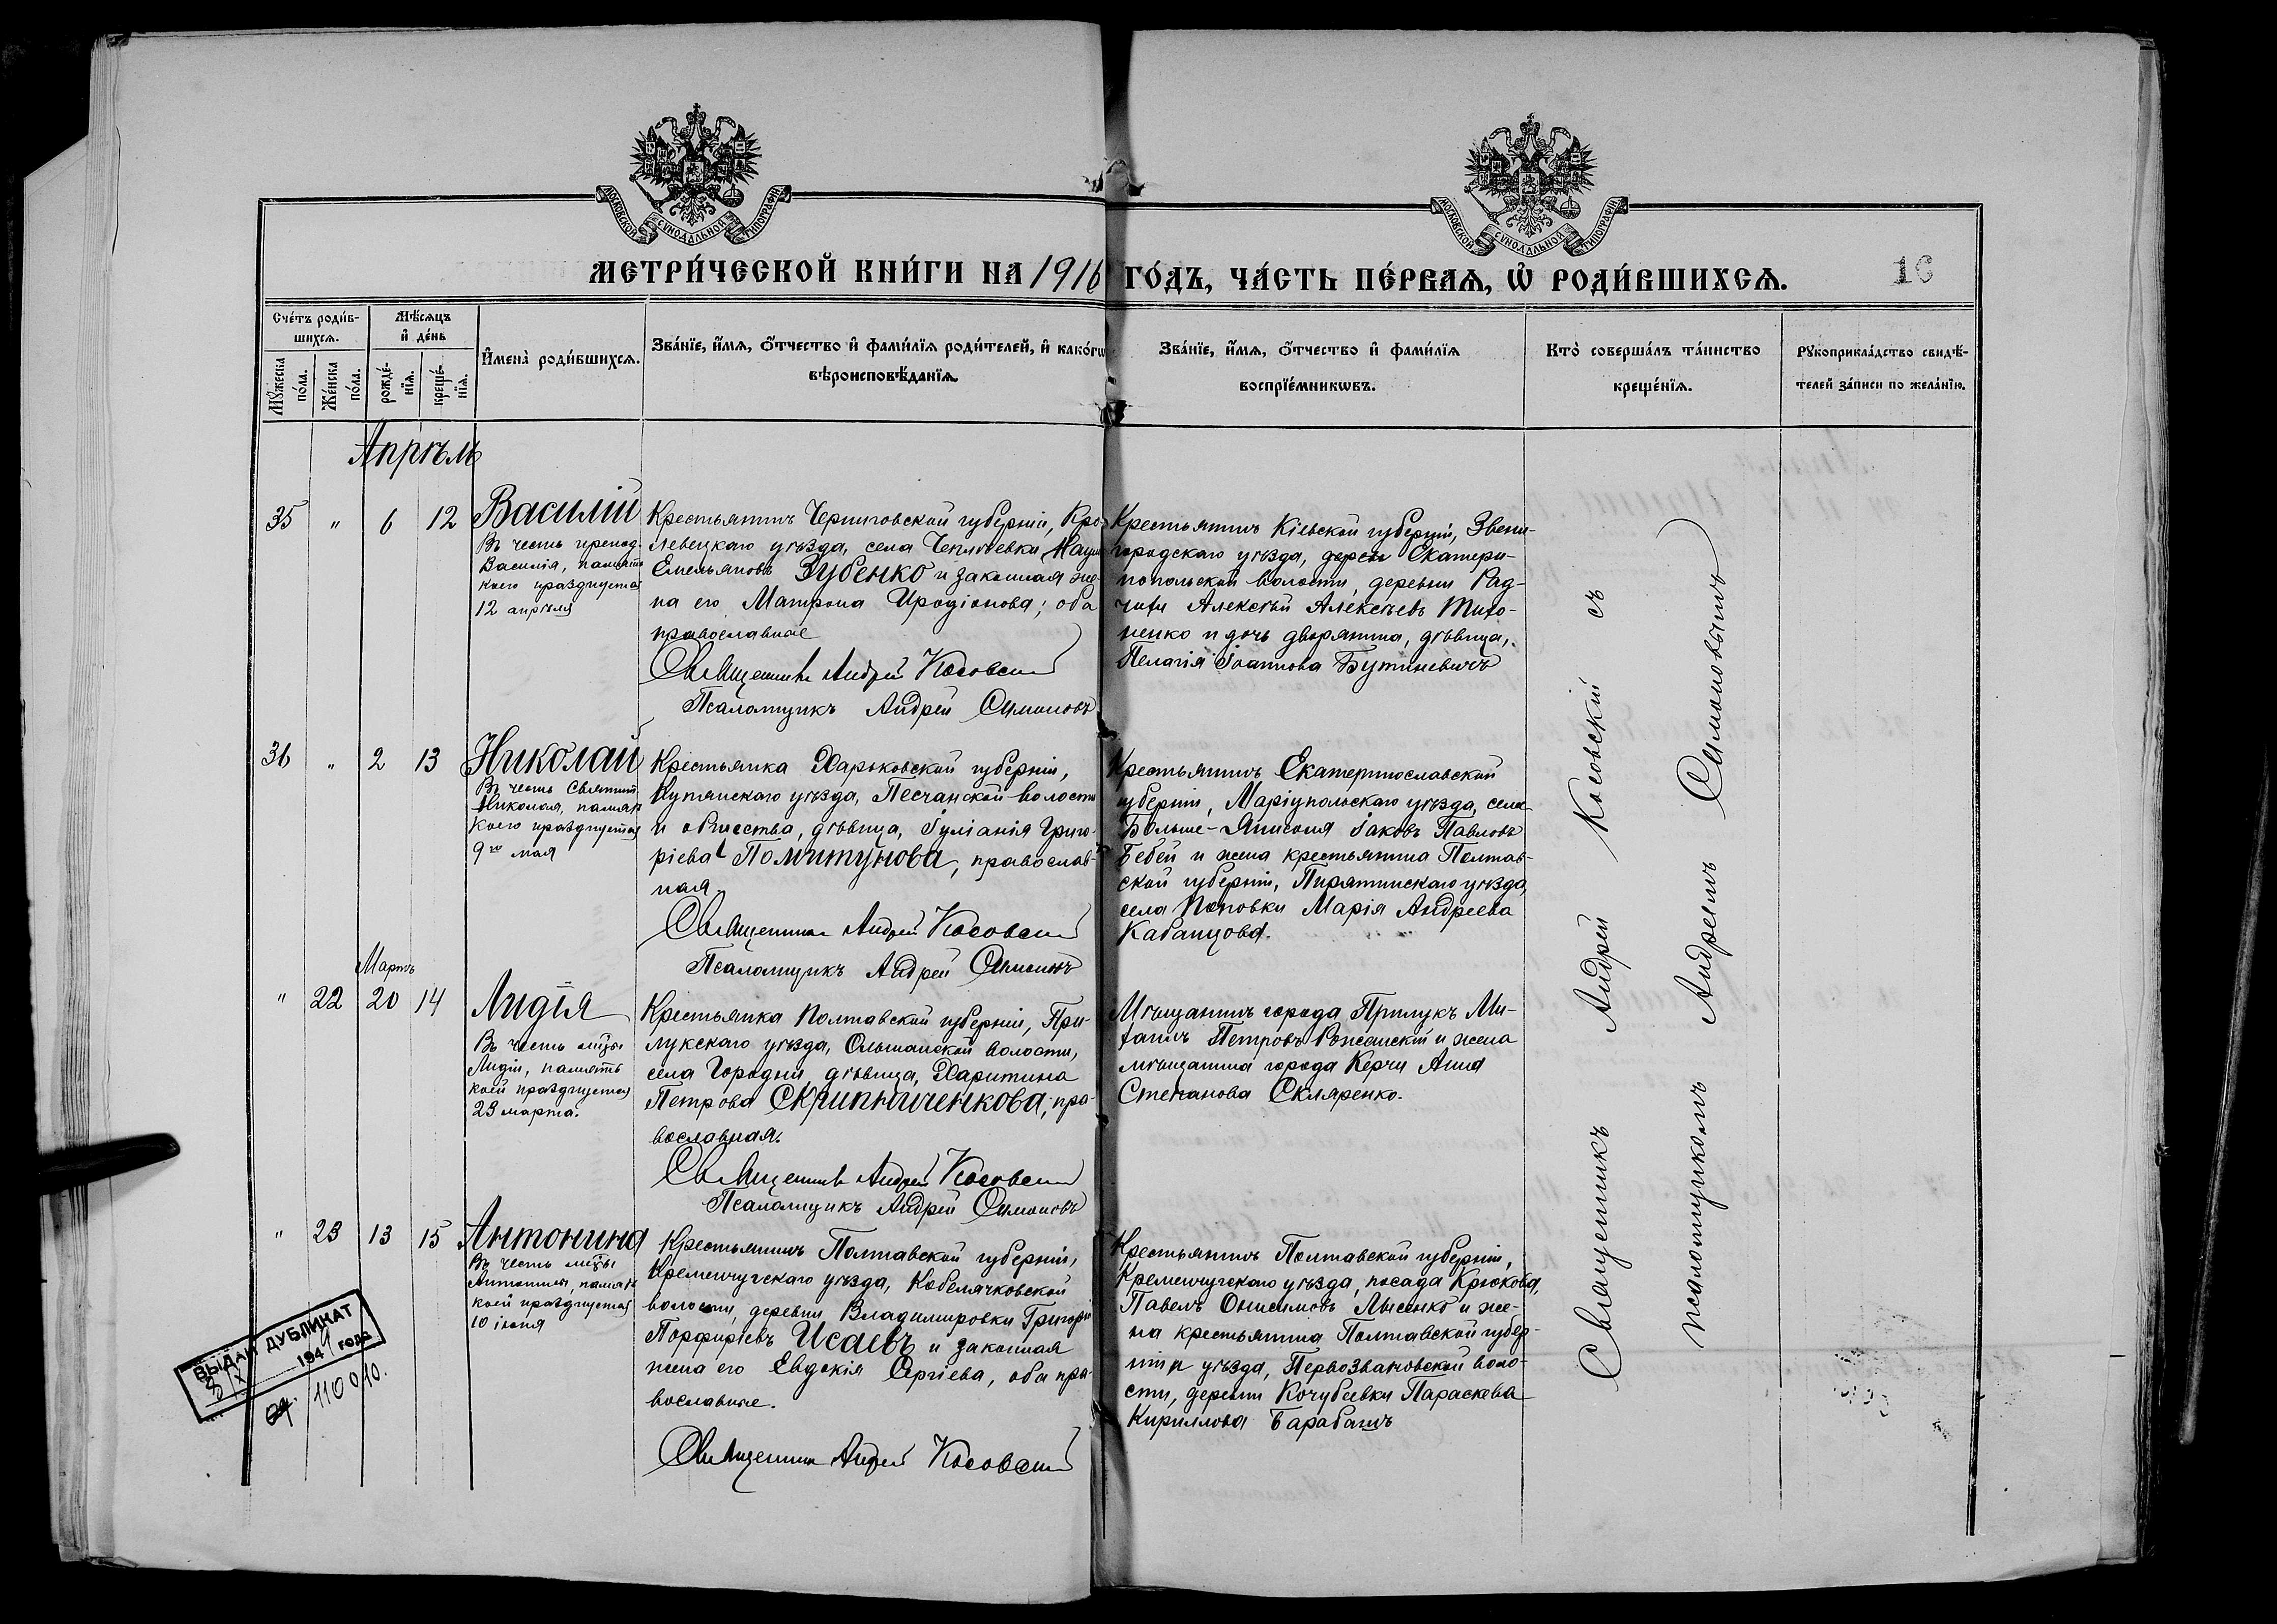 МОСКОВСКОЙ СУНОДАЛЬНОЙ ТИПОГРАФІИ
МОСКОВСКОЙ СУНОДАЛЬНОЙ ТИПОГРАФІИ
МЕТРИ́ЧЕСКОЙ КНИ́ГИ НА 1916 ГО́ДЪ, ЧА́СТЬ ПЕ́РВАѦ, Ѡ҆ РОДИ́ВШИХСѦ.
16
Сче́тъ роди́в-
шихсѧ.
Мꙋ́жеска по́ла.
Же́нска по́ла.
Мѣ́сѧцъ
и҆ де́нь
рожде́-
нїѧ.
креще́-
нїѧ.
И҆мена̀ роди́вшихсѧ.
Зва́нїе, и҆́мѧ, ѻ҆́тчество и҆ фами́лїѧ роди́телей, и҆ како́гѡ
вѣроисповѣ́данїѧ.
Зва́нїе, и҆́мѧ, ѻ҆́тчество и҆ фами́лїѧ
воспрїе́мникѡвъ.
Кто̀ соверша́лъ та́инство
креще́нїѧ.
Рꙋкоприкла́дство свидѣ́-
телей за́писи по жела́нїю.
Апрѣль
35 " 6 12
Василій
Въ честь препод.
Василія, память
коего празднуется
12 апрѣля
Крестьянинъ Черниговской губерніи, Кро-
левецкаго уѣзда, села Чеплеевки, Наумъ
Емельяновъ Зубенко и законная же-
на его Матрона Иродіонова; оба
православные
Священникъ Андрей Косовскій
Псаломщикъ Андрей Симоновъ
Крестьянинъ Кіевской губерніи, Звени-
городскаго уѣзда, Екатери-
нопольской волости, деревни Рад-
чихи Алексѣй Алексѣевъ Тихо-
ненко и дочь дворянина, дѣвица,
Пелагія Іоаннова Бутиневичъ
36 " 2 13
Николай
Въ честь Святит.
Николая, память
коего празднуется
9го мая
Крестьянка Харьковской губерніи,
Купянскаго уѣзда, Песчанской волости
и общества, дѣвица, Іуліанія Григо-
ріева Политунова, православ-
ная.
Священникъ Андрей Косовскій
Псаломщикъ Андрей Симоновъ
Крестьянинъ Екатеринославской
губерніи, Маріупольскаго уѣзда, села
Больше-Янисоля Іаковъ Павловъ
Бебей и жена крестьянина Полтав-
ской губерніи, Пирятинскаго уѣзда,
села Поповки Марія Андреева
Кабанцова.
Мартъ
" 22 20 14
Лидія
Въ честь муцы
Лидіи, память
коей празднуется
23 марта.
Крестьянка Полтавской губерніи, При-
лукскаго уѣзда, Ольшанской волости,
села Городни, дѣвица, Харитина
Петрова Скрипниченкова, пра-
вославная.
Священникъ Андрей Косовскій
Псаломщикъ Андрей Симоновъ
Мѣщанинъ города Прилукъ Ми-
хаилъ Петровъ Рожанскій и жена
мѣщанина города Керчи Анна
Степанова Скляренко.
" 23 13 15
Антонина
Въ честь муцы
Антонины, память
коей празднуется
10 іюня
Крестьянинъ Полтавской губерніи,
Кременчугскаго уѣзда, Кобелячковской
волости, деревни Владимировки Григорій
Порфиріевъ Исаевъ и законная
жена его Евдокія Сергіева, оба пра-
вославные.
Священникъ Андрей Косовскій
Крестьянинъ Полтавской губерніи,
Кременчугскаго уѣзда, посада Крюкова,
Павелъ Онисимовъ Лысенко и же-
на крестьянина Полтавской губер-
ніи и уѣзда, Первозвановской воло-
сти, деревни Кочубеевки Параскева
Кириллова Барабашъ
Священникъ Андрей Косовскій съ
псаломщикомъ Андреемъ Симоновымъ
ВЫДАН ДУБЛИКАТ
1941 года
110010.